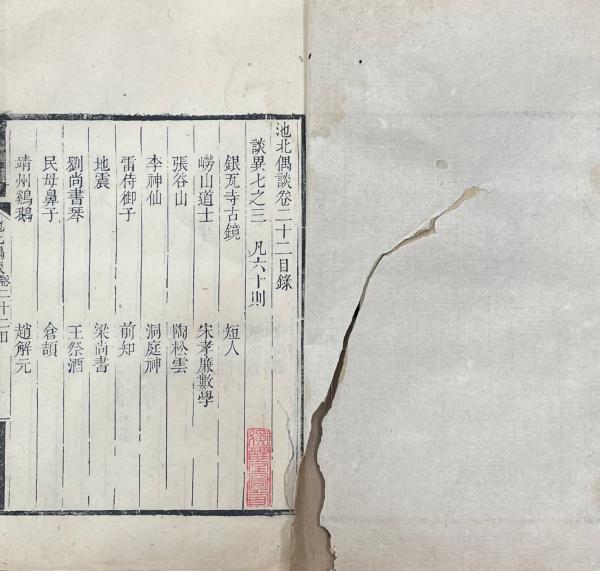 池北偶談卷二十二目錄
談異七之三 凡六十則
銀瓦寺古鏡 短人
嶗山道士 宋孝廉數學
張谷山 陶松雲
李神仙 洞庭神
雷侍御子 前知
地震 梁尚書
劉尚書琴 王祭酒
民母鼻子 倉頡
靖州鷄鵝 趙解元
池北偶談 卷二十二目